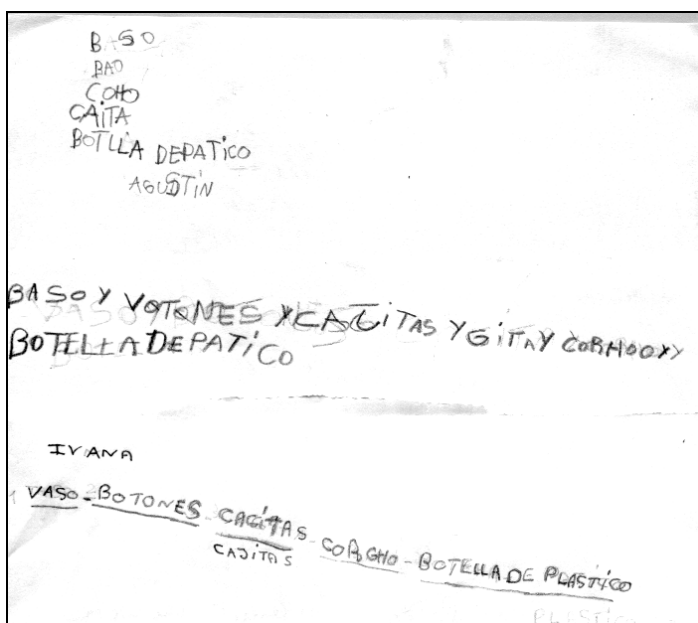 BASO
BAO
COHO
CAITA
BOTLLA DEPATICO
AGUSTIN
BASO Y VOTONES Y CAGITAS Y GITAY CORHOOXY
BOTELLA DEPATICO
IVANA
VASO - BOTONES - CAGITAS - CORGHO - BOTELLA DE PLASTICO
CAJITAS
PLASTICO